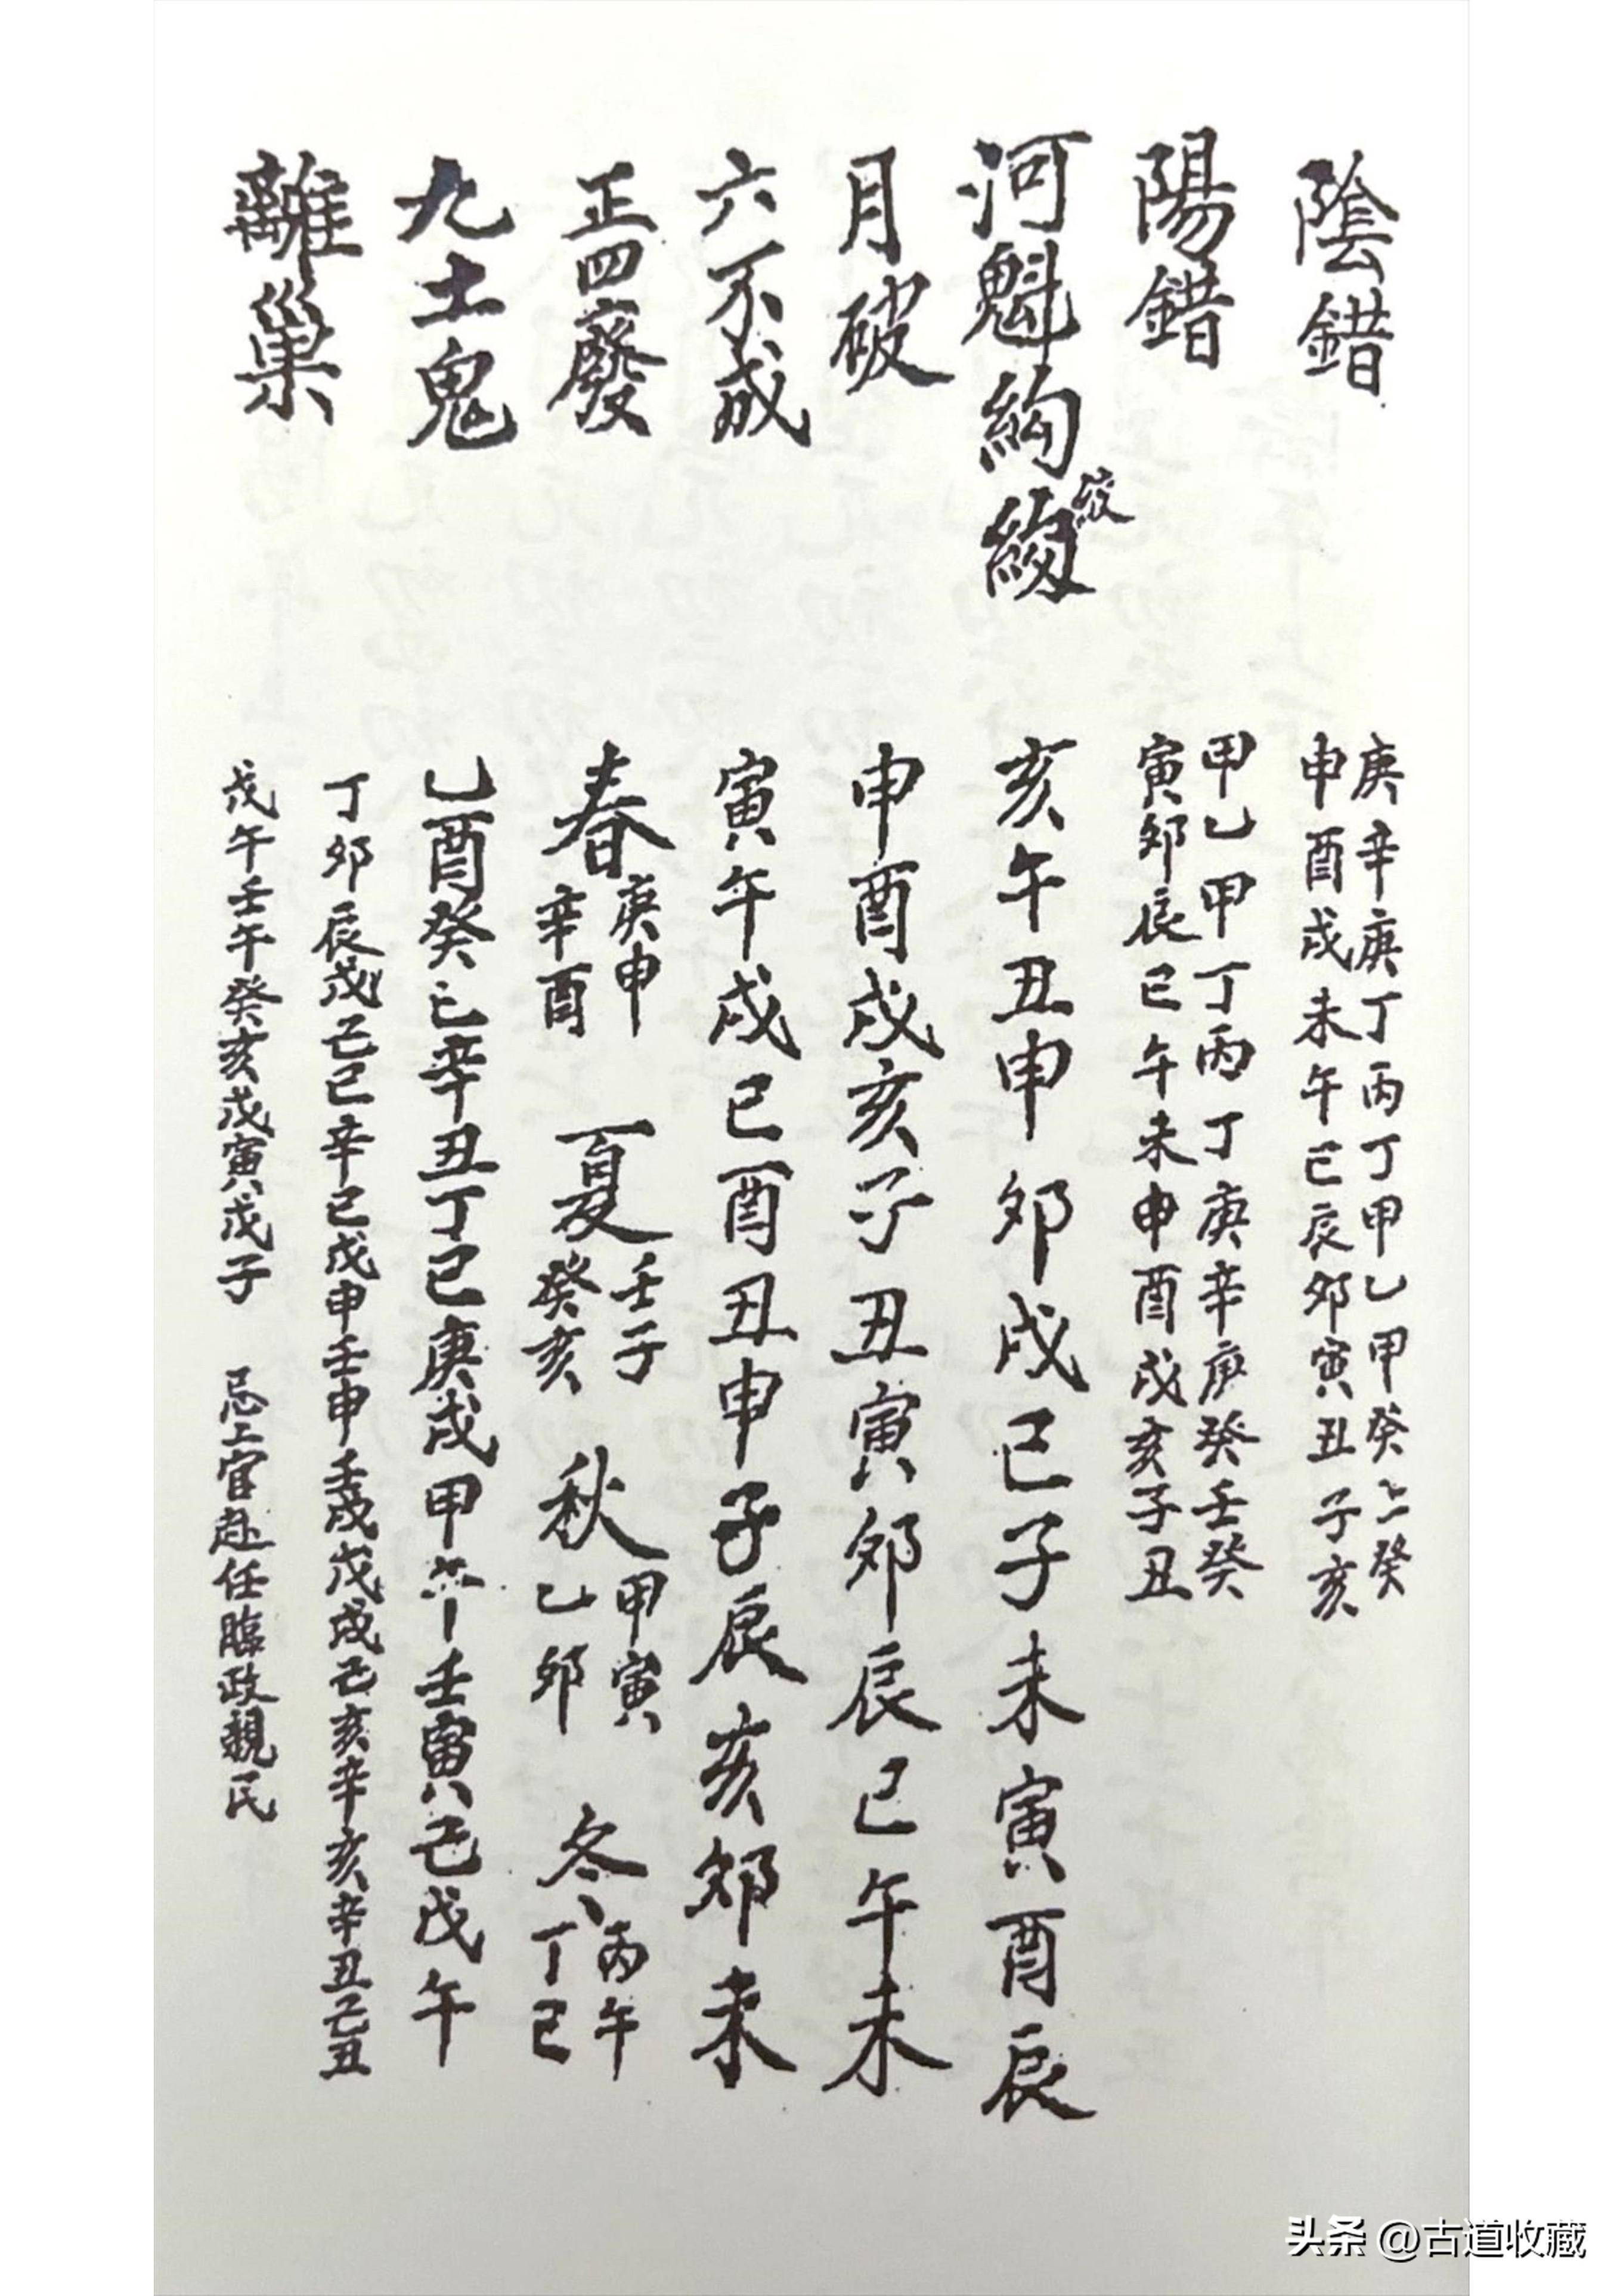 陰錯
庚辛庚丁丙丁甲乙甲癸壬癸
申酉戌未午巳辰卯寅丑子亥
陽錯
甲乙甲丁丙丁庚辛庚癸壬癸
寅卯辰巳午未申酉戌亥子丑
河魁絇絞
亥午丑申卯戌巳子未寅酉辰
月破
申酉戌亥子丑寅卯辰巳午未
六不成
寅午戌巳酉丑申子辰亥卯未
正四廢
春庚申辛酉 夏壬子癸亥 秋甲寅乙卯 冬丙午丁巳
九土鬼
乙酉癸巳辛丑丁巳庚戌甲午壬寅己戊午
離巢
丁卯辰戊己巳辛巳戊申壬申壬戌戊戌己亥辛亥辛丑己丑
戊午壬午癸亥戊寅戊子 忌上官赴任臨政親民
头条 @古道收藏